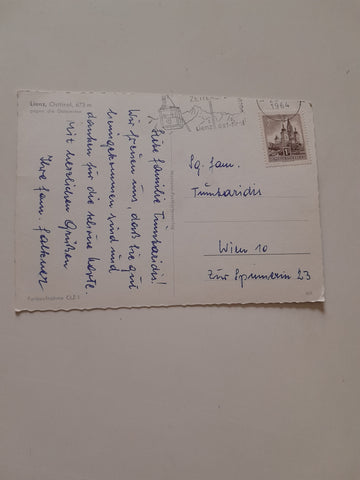 Lienz, Osttirol, 673 m
gegen die Dolomiten
Liebe Familie Tumbaridis!
Wir freuen uns, daß Sie gut
heimgekommen sind und
danken für die schöne Karte.
Mit herzlichen Grüßen
Ihre Fam.
1964
Lienz/Osttirol
Sg. Fam.
Tumbaridis
Wien 10
Zur Spinnerin 23